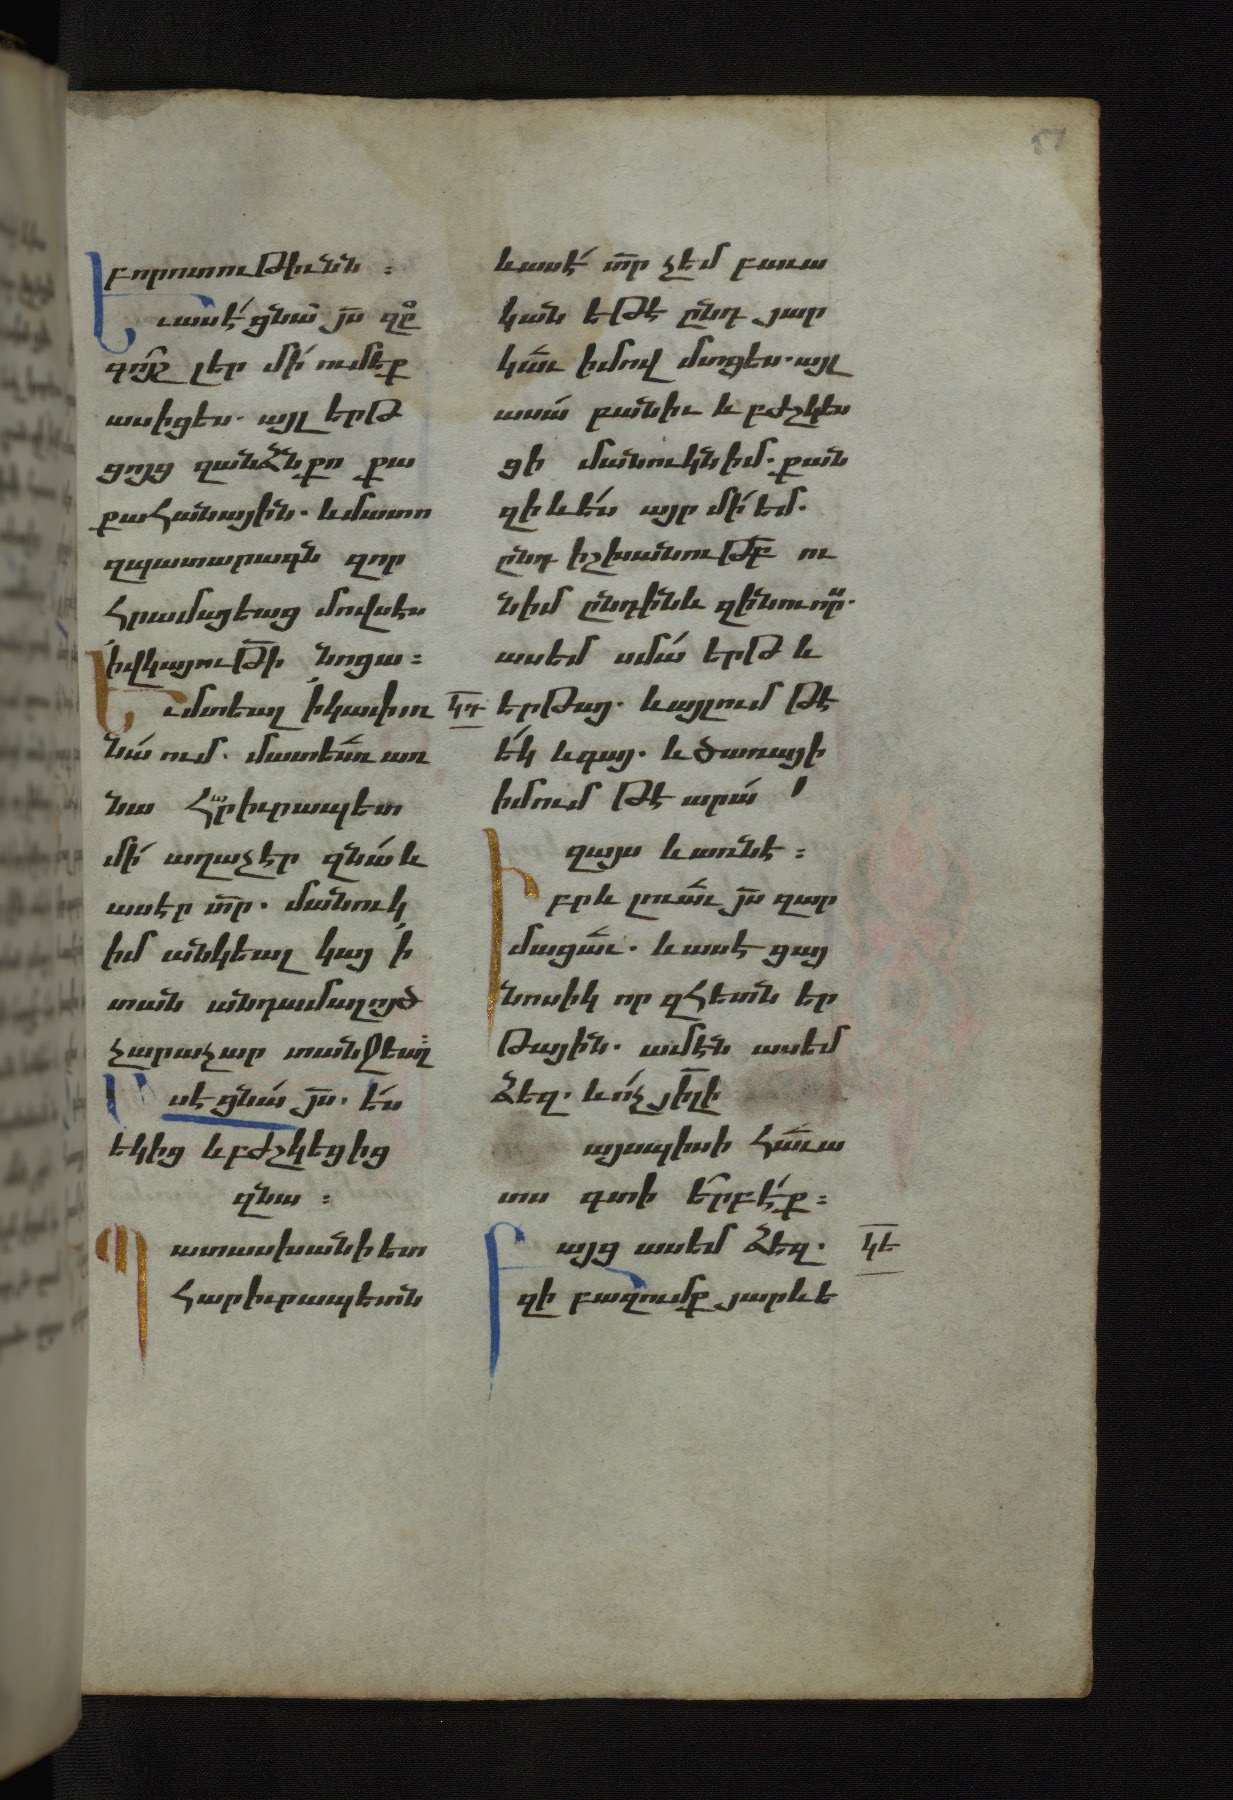 բորոտութիւնն ։
Եւ ասէ ցնա յս զգ
գոյշ լեր մի՛ ումեք
ասիցես. այլ երթ
ցոյց զանձն քո քա
քահանային. և մատո
զպատարագն զոր
հրամայեաց մովսէս
ի վկայութի նոցա ։
Եւ մտեալ ի կափառ
նա ում. մատեաւ առ
նա հրիւրապետ
մի՛ աղաչէր զնա և
ասէր տր. մանուկ
իմ անկեալ կայ ի
տան անդամալոյծ
չարաչար տանջեալ ։
Ասէ ցնա յս. ես
եկից և բժշկեցից
զնա ։
Պատասխանի ետ
հարիւրապետն
և ասէ տր չեմ բաւա
կան եթէ ընդ յար
կաւ իմով մտցես. այլ
ասա բանիւ և բժշկես
ցի մանուկն իմ. քան
զի և ես այր մի՛ եմ.
ընդ իշխանութբ ու
նիմ ընդ ինև զինուոր.
ասեմ սմա երթ և
կդ երթայ. և այլում թէ
եկ և գայ. և ծառայի
իմում թէ արա՛
զայս և առնէ ։
Իբրև լուաւ յս զար
մացաւ. և ասէ ցայ
նոսիկ որ զհետն եր
թային. ամէն ասեմ
ձեզ. և ոչ յիլի
այսպիսի հաւա
տս գտի երբէք ։
Բայց ասեմ ձեզ. կե
զի բազումք յարևե
57